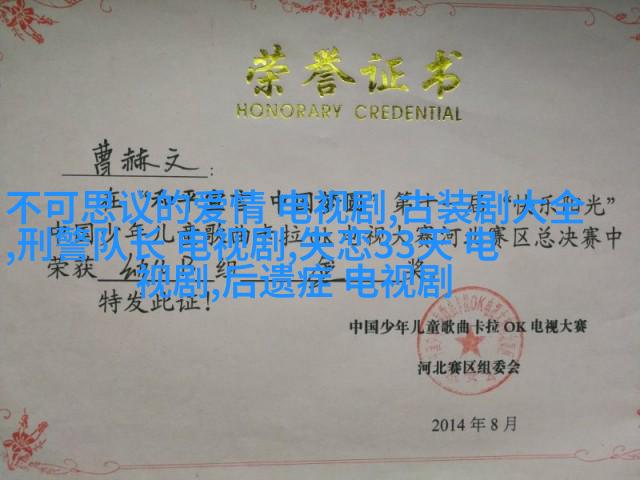 荣誉证书
HONORARY CREDENTIAL
曹赫文:
不可思议的爱情 电视剧,古装剧大全
,刑警队长 电视剧,失恋33天 电
视剧,后遗症 电视剧
第十 “快乐阳光”
中国少年儿童歌曲卡拉OK电视大赛河北赛区总决赛中
荣获 组 奖
特发此证!
中国少年儿童歌曲卡拉OK电视大赛
河北赛区组委会
2014年8月